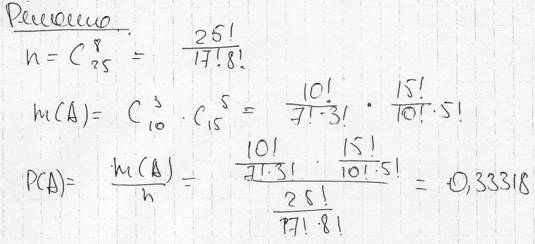 Решение
n = C₂₅⁸ = 25! / 17! 8!
m(A) = C₁₀³ · C₁₅⁵ = 10! / 7! · 3! · 15! / 10! · 5!
P(A) = m(A) / n = (10! / 7! · 3! · 15! / 10! · 5!) / (25! / 17! · 8!) = 0,33318